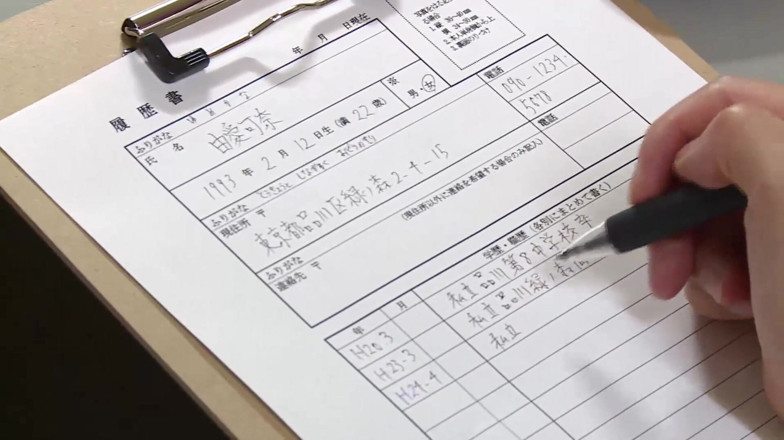 写真をはる
る場合
1. 縦 36〜40mm
横 24〜30mm
2. 本人単身胸から上
3. 裏面のりづけ
年 月 日現在
履歴書
ふりがな
氏 名 由愛可奈
※
男・女
1993 年 2 月 12 日生 (満 22 歳)
電話
090-1234-
5678
ふりがな とうきょうと しながわく みどりのもり
現住所 〒
東京都品川区緑ノ森2-4-15
電話
ふりがな
連絡先 〒
(現住所以外に連絡を希望する場合のみ記入)
年 月 学歴・職歴 (各別にまとめて書く)
H20 3 私立品川第8中学校卒
H23・3 私立品川緑ノ森高
H24・4 私立